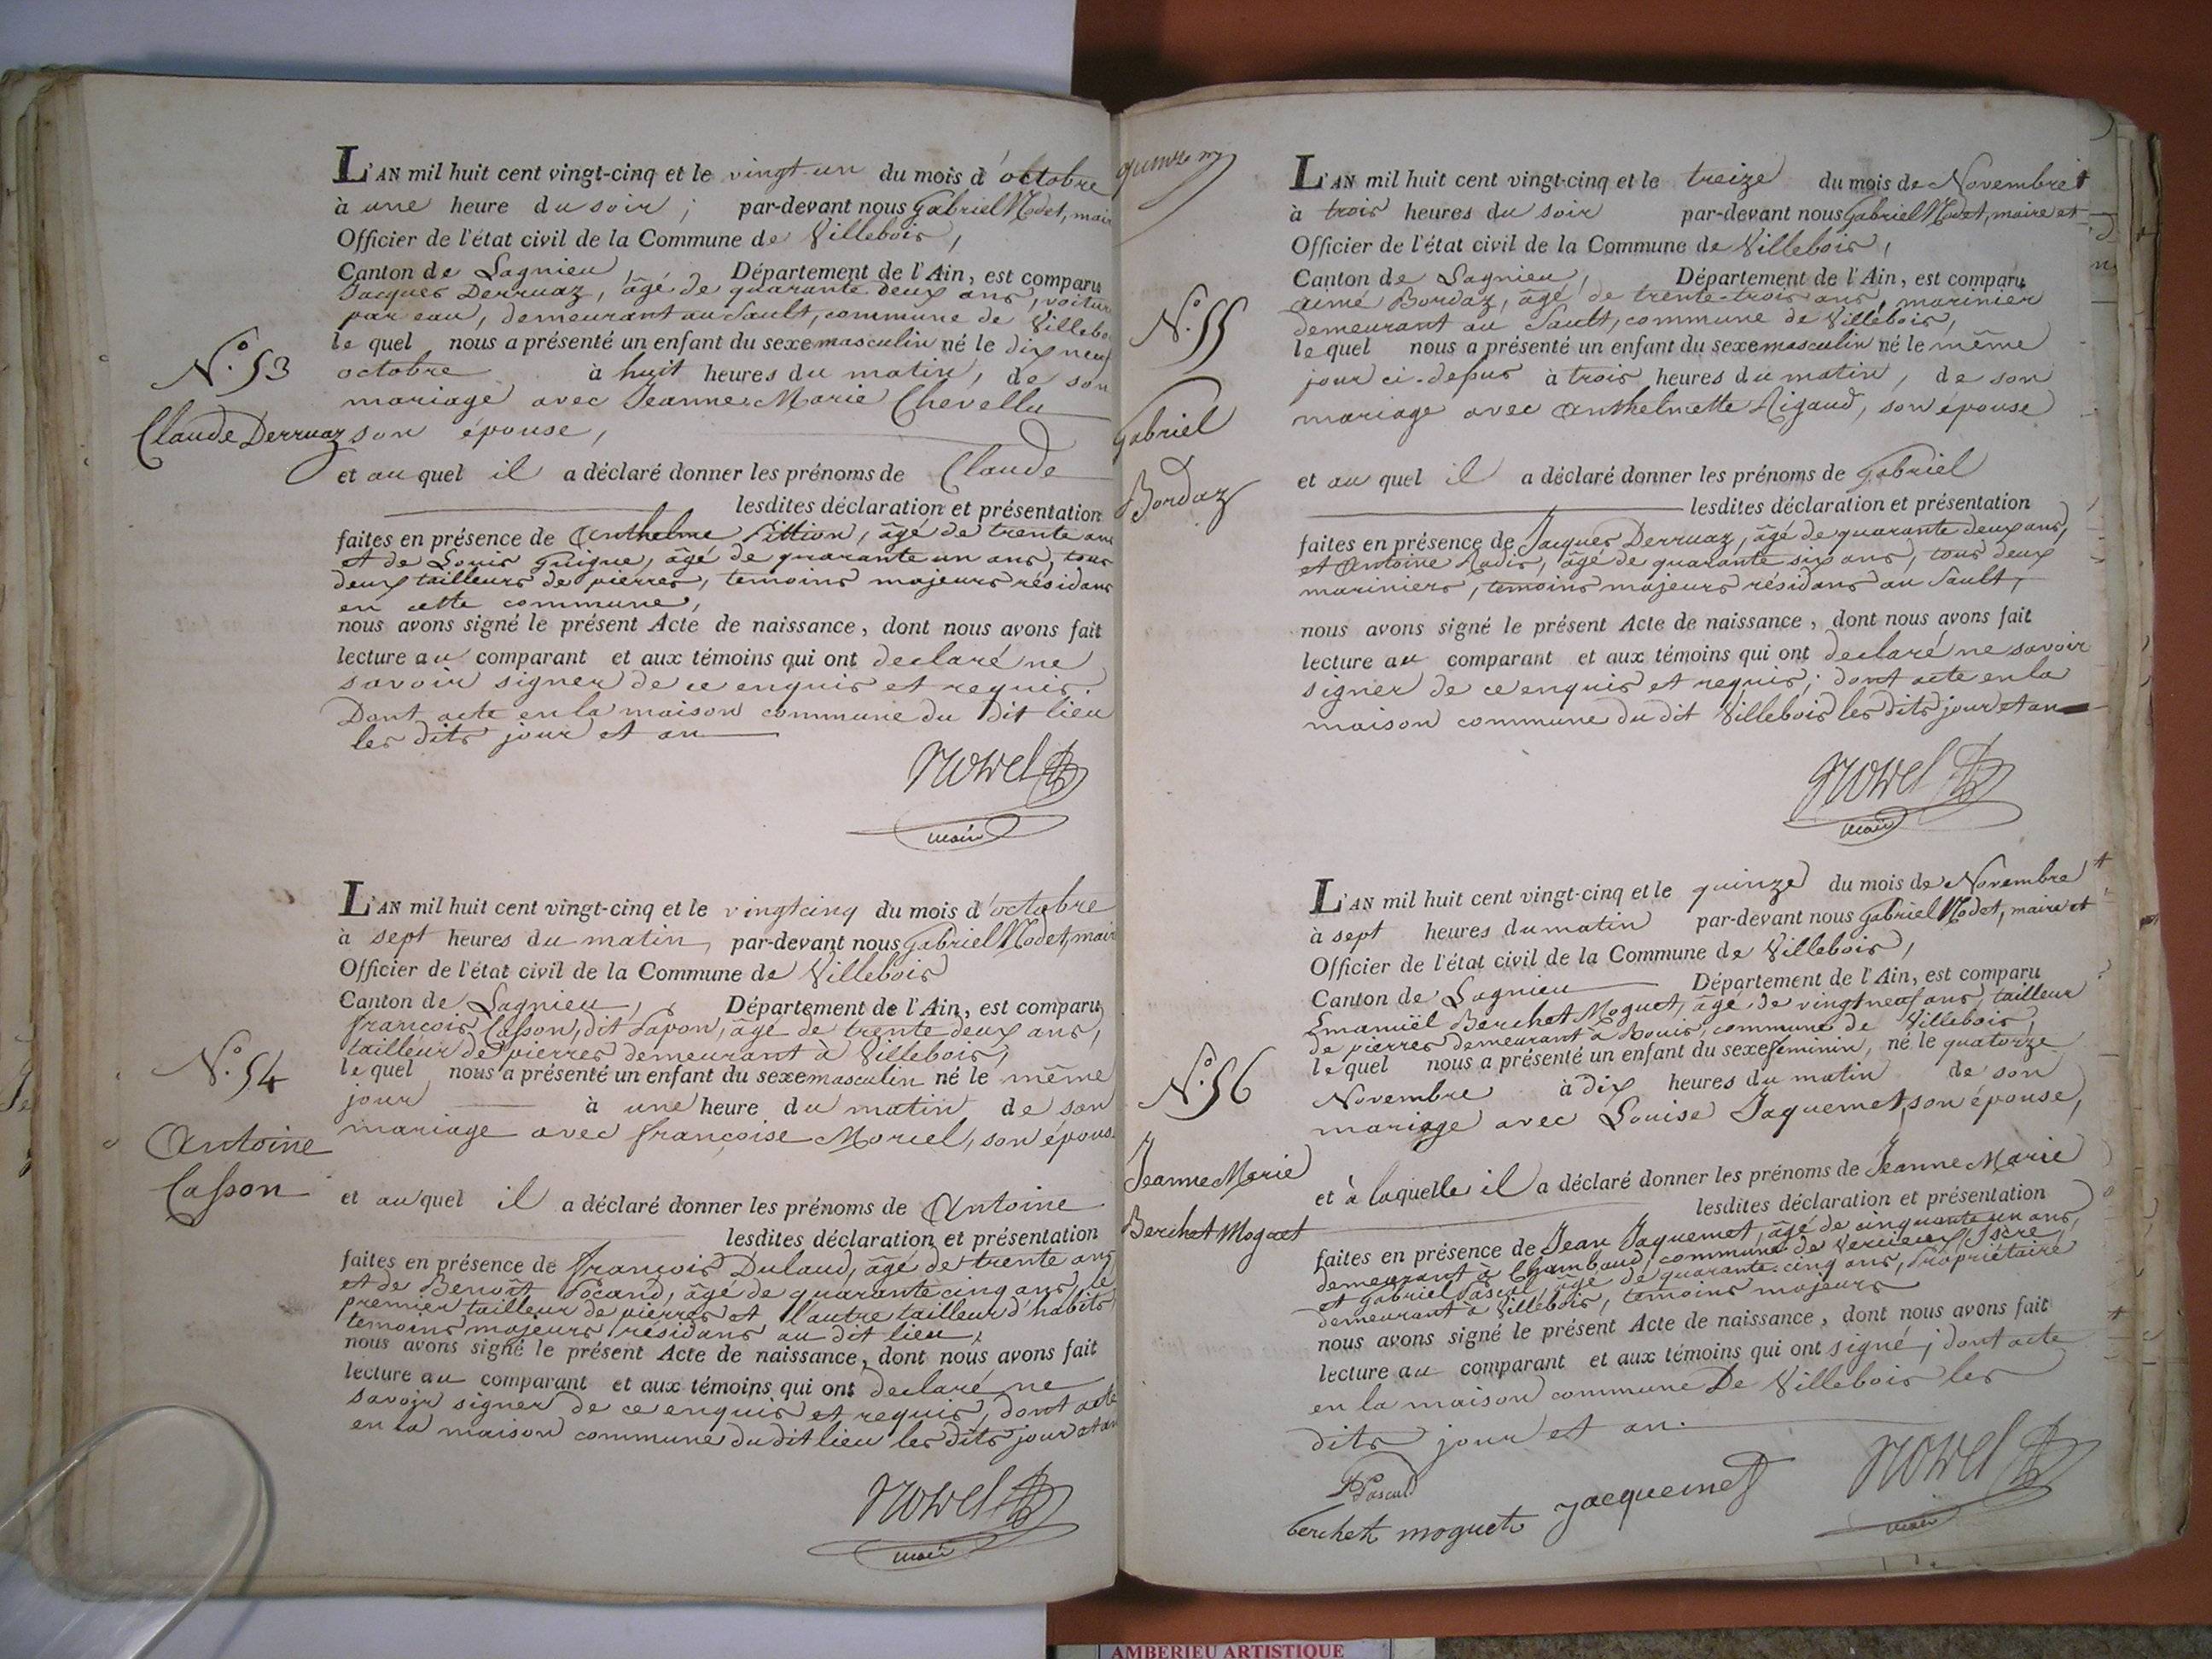 L'AN mil huit cent vingt-cinq et le vingt-un du mois d'octobre
à une heure du soir ; par-devant nous Gabriel Nodet, mair
Officier de l'état civil de la Commune de Villebois,
Canton de Lagnieu, Département de l'Ain, est comparu
Jacques Derruaz, âgé de quarante deux ans, voitur
par eau, demeurant au Sault, commune de Villebo
le quel nous a présenté un enfant du sexe masculin né le dix neuf
octobre à huit heures du matin, de son
mariage avec Jeanne Marie Chevellu
son épouse,
N.° 53
Claude Derruaz
et au quel il a déclaré donner les prénoms de Claude
lesdites déclaration et présentation
faites en présence de Anthelme Pittion, âgé de trente an
et de Louis Guigue, âgé de quarante un ans, tous
deux tailleurs de pierres, temoins majeurs résidans
en cette commune,
nous avons signé le présent Acte de naissance, dont nous avons fait
lecture au comparant et aux témoins qui ont declaré ne
savoir signer de ce enquis et requis.
Dont acte en la maison commune du dit lieu
les dits jour et an
Nodet
maire
L'AN mil huit cent vingt-cinq et le vingt cinq du mois d'octobre
à sept heures du matin, par-devant nous Gabriel Nodet, mair
Officier de l'état civil de la Commune de Villebois
Canton de Lagnieu, Département de l'Ain, est comparu
françois Casson, dit Lapon, âgé de trente deux ans,
tailleur de pierres demeurant à Villebois,
le quel nous a présenté un enfant du sexe masculin né le même
jour à une heure du matin de son
mariage avec françoise Morel, son épous
N.° 54
Antoine
Casson
et au quel il a déclaré donner les prénoms de Antoine
lesdites déclaration et présentation
faites en présence de françois Dulaud, âgé de trente ans
et de Benoît Pocand, âgé de quarante cinq ans, le
premier tailleur de pierres et l'autre tailleur d'habits
temoins majeurs résidans au dit lieu,
nous avons signé le présent Acte de naissance, dont nous avons fait
lecture au comparant et aux témoins qui ont declaré ne
savoir signer de ce enquis et requis, dont acte
en la maison commune du dit lieu les dits jour et an
Nodet
maire
L'AN mil huit cent vingt-cinq et le treize du mois de Novembre
à trois heures du soir par-devant nous Gabriel Nodet, maire et
Officier de l'état civil de la Commune de Villebois,
Canton de Lagnieu, Département de l'Ain, est comparu
aimé Bordaz, âgé de trente-trois ans, marinier
demeurant au Sault, commune de Villebois,
le quel nous a présenté un enfant du sexe masculin né le même
jour ci-depus à trois heures du matin, de son
mariage avec Anthelmette Rigaud, son épouse
N.° 55
Gabriel
Bordaz
et au quel il a déclaré donner les prénoms de Gabriel
lesdites déclaration et présentation
faites en présence de Jacques Derruaz, âgé de quarante deux ans,
et Antoine Radis, âgé de quarante six ans, tous deux
mariniers, temoins majeurs résidans au Sault,
nous avons signé le présent Acte de naissance, dont nous avons fait
lecture au comparant et aux témoins qui ont declaré ne savoir
signer de ce enquis et requis; dont acte en la
maison commune du dit Villebois les dits jour et an
Nodet
maire
L'AN mil huit cent vingt-cinq et le quinze du mois de Novembre
à sept heures du matin par-devant nous Gabriel Nodet, maire et
Officier de l'état civil de la Commune de Villebois,
Canton de Lagnieu Département de l'Ain, est comparu
Emanuël Berchet Moguet, âgé de vingt neuf ans, tailleur
de pierres demeurant à Bouis, commune de Villebois,
le quel nous a présenté un enfant du sexe feminin, né le quatorze
Novembre à dix heures du matin de son
mariage avec Louise Jaquemet, son épouse,
N.° 56
Jeanne Marie
Berchet Moguet
et à laquelle il a déclaré donner les prénoms de Jeanne Marie
lesdites déclaration et présentation
faites en présence de Jean Jaquemet, âgé de cinquante un ans,
demeurant à Chambaud, commune de Vercieux, Isère,
et Gabriel Pascal, âgé de quarante-cinq ans, Propriétaire
demeurant à Villebois, temoins majeurs
nous avons signé le présent Acte de naissance, dont nous avons fait
lecture au comparant et aux témoins qui ont signé; dont acte
en la maison commune De Villebois les
dits jour et an.
Pascal
berchet moguet Jacquemet Nodet
maire
AMBERIEU ARTISTIQUE